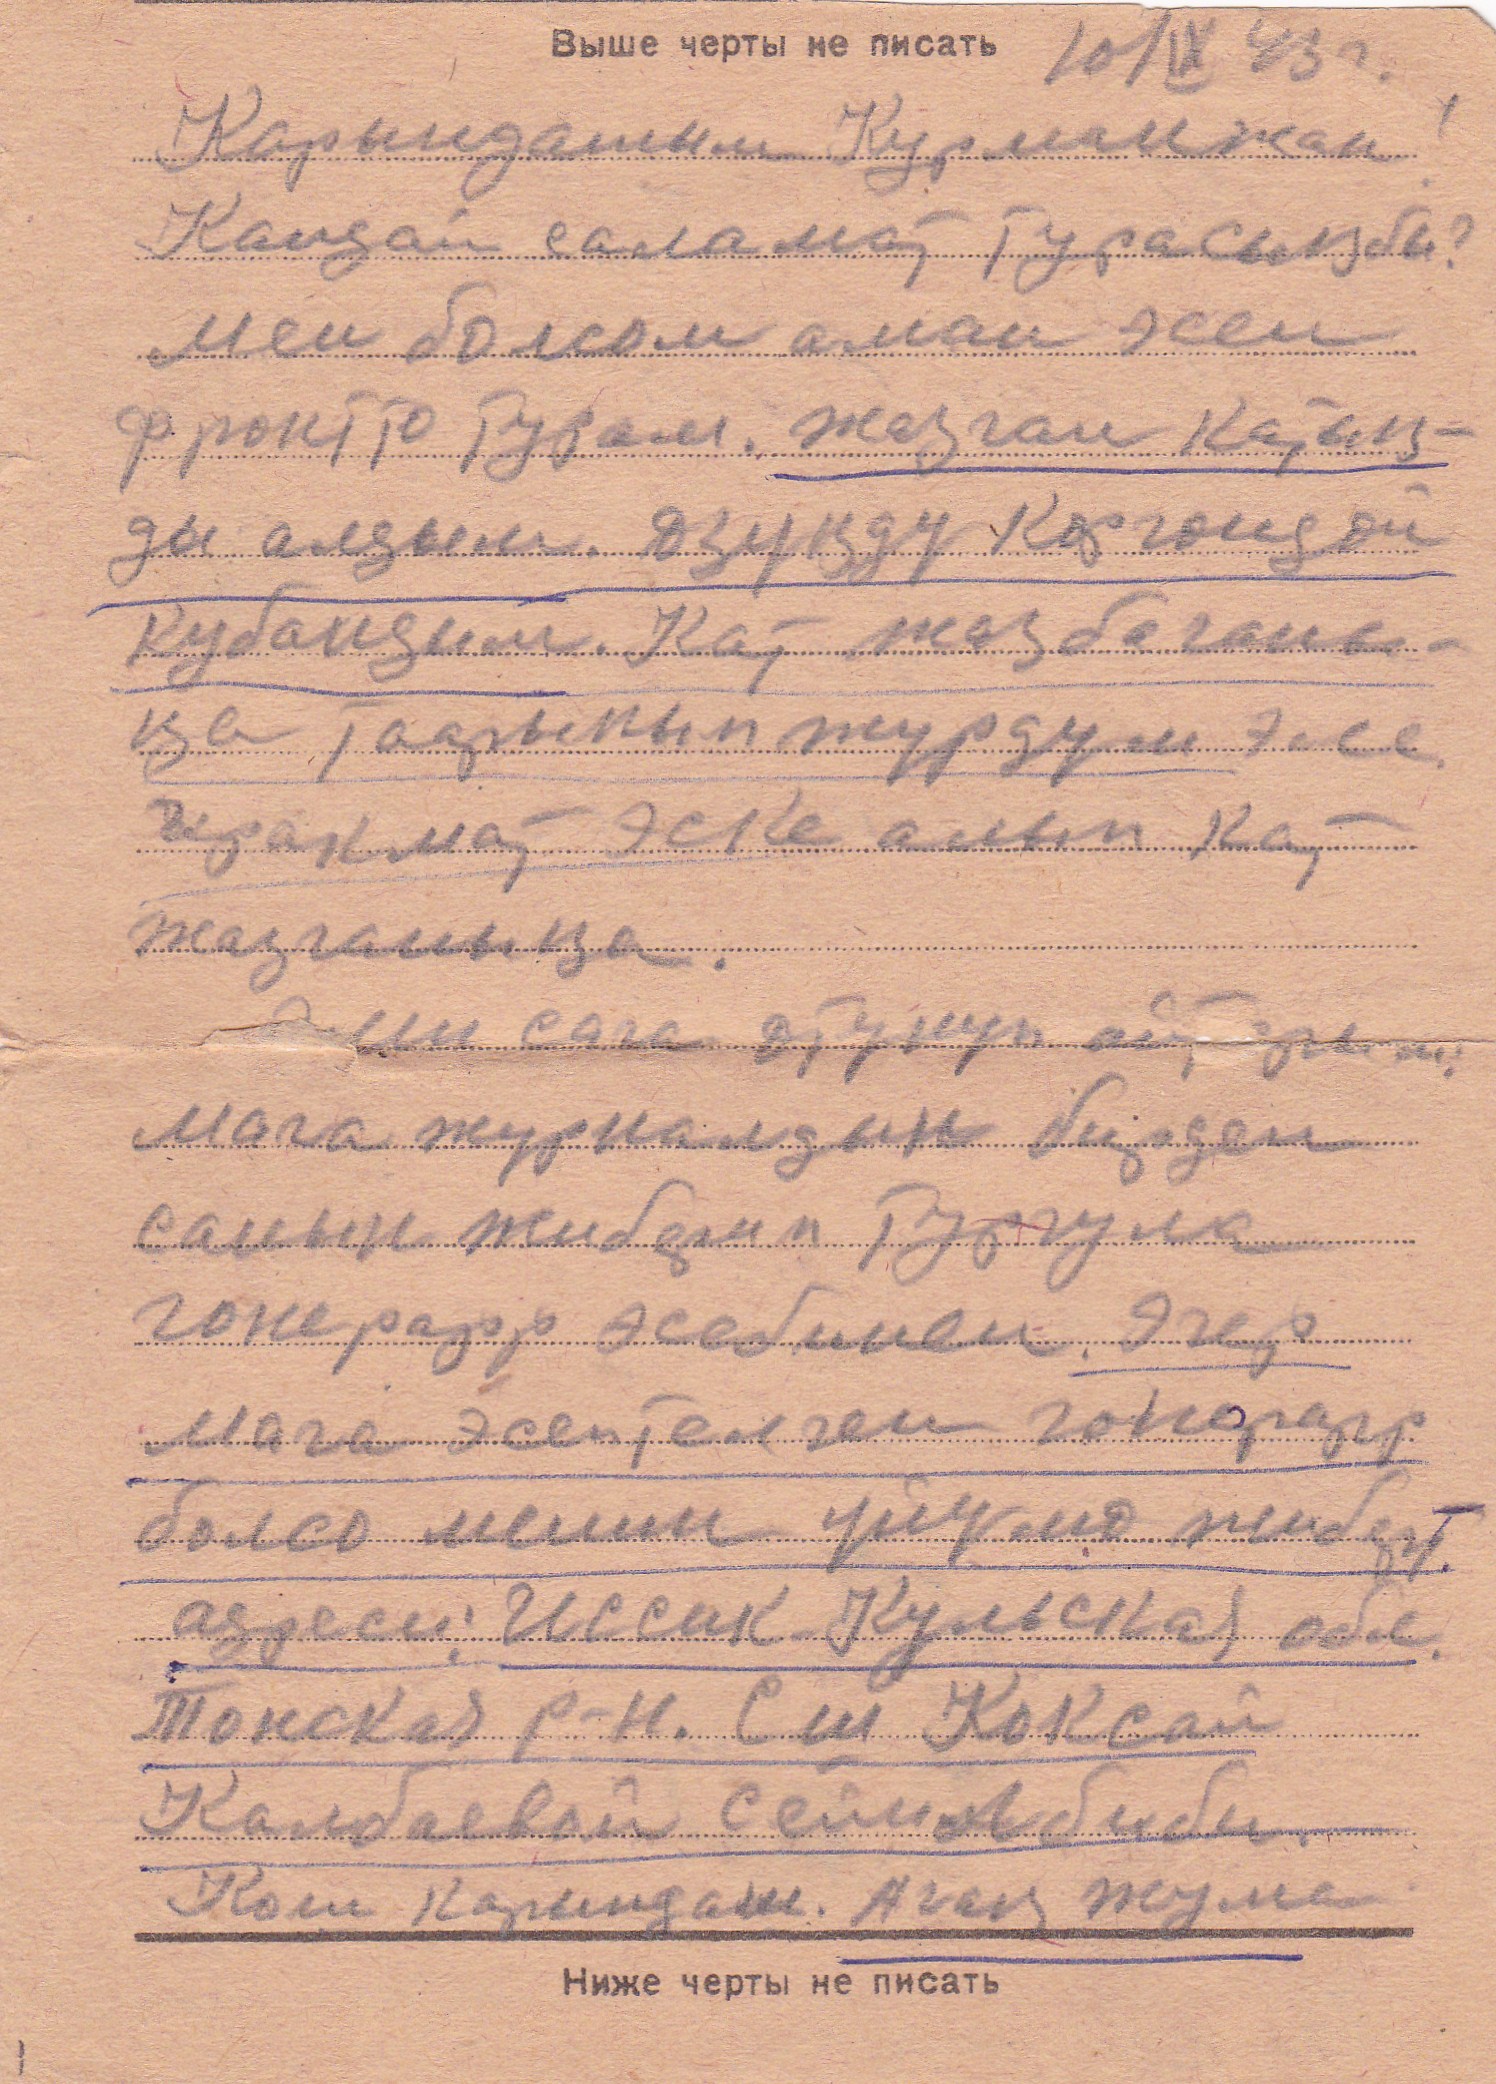 Выше черты не писать
10/IX 43 г.
Карындашым Курманжан!
Кандай саламат турасыңбы?
Мен болсом аман эсен
фронтто турам. Жазган катың-
ды алдым. Өзүңдү көргөндөй
кубандым. Кат жазбаганы-
ңа таарынып жүрдүм эле.
Ырахмат эске алып кат
жазганыңа.
Эми сага өтүнүч айтарым:
мага журналдын бирден
санын жиберип тургула
гонорар эсебинен. Эгер
мага эсептелген гонорар
болсо менин үйүмө жибер.
адреси: Иссик-Кульская обл.
Тонская р-н. Сш Коксай
Калбаевой Сейилбүбү.
Кош карындаш. Агаң Жума
Ниже черты не писать